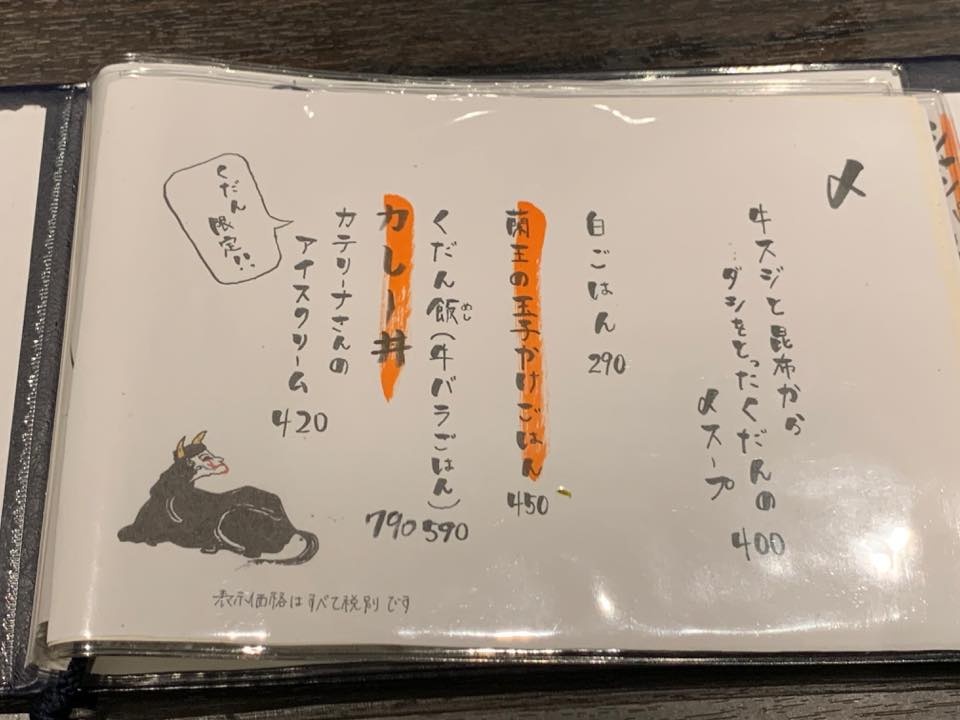 〆
牛スジと昆布から
ダシをとったくだんの
〆スープ 400
白ごはん 290
蘭王の玉子かけごはん 450
くだん飯(牛バラごはん) 590
めし
カレー丼 790
カテリーナさんの
アイスクリーム 420
くだん
限定!!
表示価格はすべて税別です